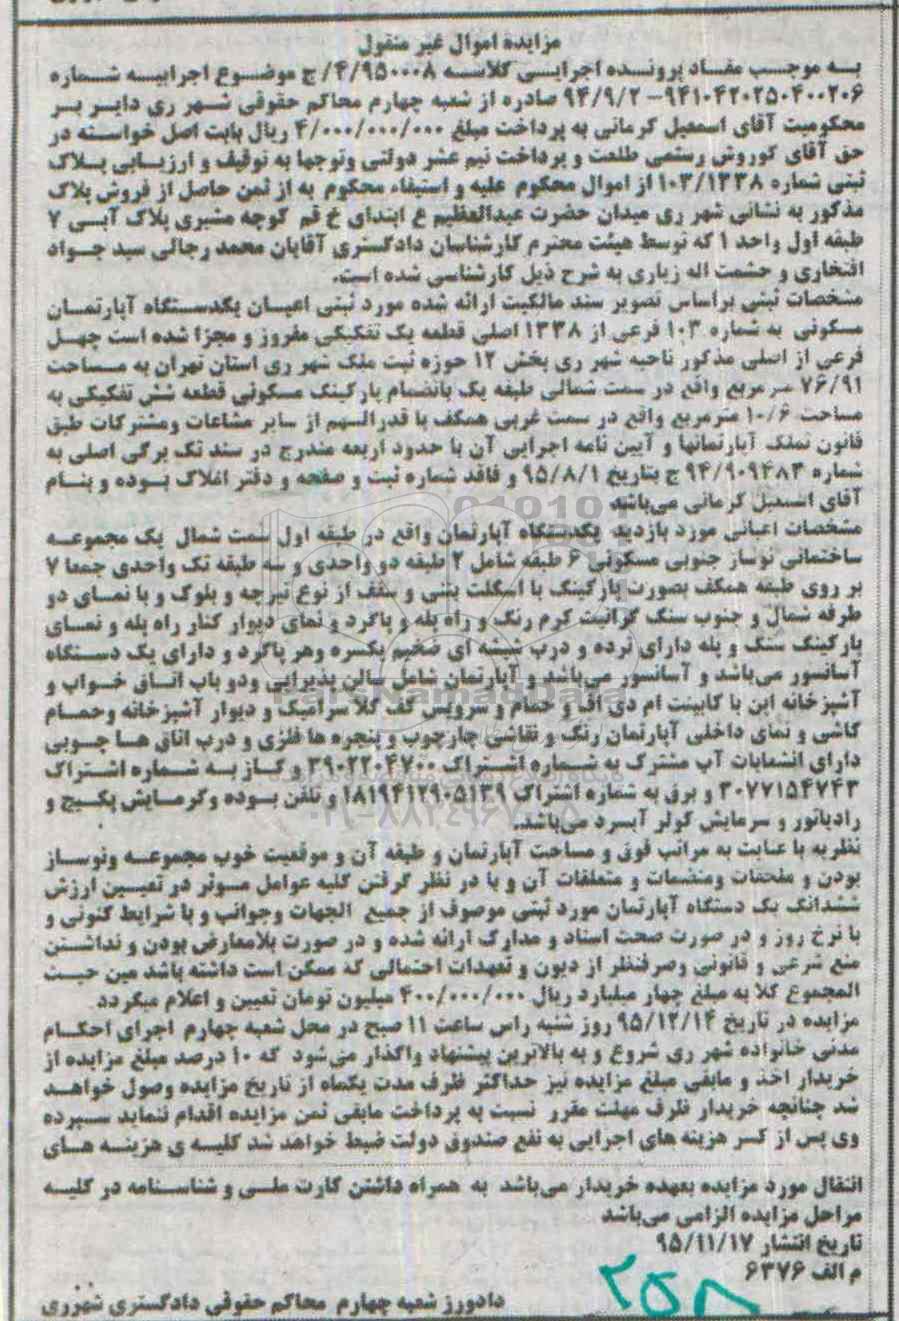 مزایده اموال غیر منقول
به موجب مفاد پرونده اجرایی کلاسه ۴/۹۵۰۰۰۸/ ج موضوع اجراییه شماره
۹۴۱۰۴۲۰۲۵۰۴۰۰۲۰۶ – ۹۴/۹/۲ صادره از شعبه چهارم محاکم حقوقی شهر ری دایر بر
محکومیت آقای اسمعیل کرمانی به پرداخت مبلغ ۴/۰۰۰/۰۰۰/۰۰۰ ریال بابت اصل خواسته در
حق آقای کوروش رستمی طلعت و پرداخت نیم عشر دولتی وتوجها به توقیف و ارزیابی پلاک
ثبتی شماره ۱۰۳/۱۳۳۸ از اموال محکوم علیه و استیفاء محکوم به از ثمن حاصل از فروش پلاک
مذکور به نشانی شهر ری میدان حضرت عبدالعظیم ع ابتدای خ قم کوچه مشیری پلاک آبی ۷
طبقه اول واحد ۱ که توسط هیئت محترم کارشناسان دادگستری آقایان محمد رجالی سید جواد
افتخاری و حشمت اله زیاری به شرح ذیل کارشناسی شده است.
مشخصات ثبتی براساس تصویر سند مالکیت ارائه شده مورد ثبتی اعیان یکدستگاه آپارتمان
مسکونی به شماره ۱۰۳ فرعی از ۱۳۳۸ اصلی قطعه یک تفکیکی مفروز و مجزا شده است چهل
فرعی از اصلی مذکور ناحیه شهر ری بخش ۱۲ حوزه ثبت ملک شهر ری استان تهران به مساحت
۷۶/۹۱ متر مربع واقع در سمت شمالی طبقه یک بانضمام پارکینک مسکونی قطعه شش تفکیکی به
مساحت ۱۰/۶ مترمربع واقع در سمت غربی همکف با قدرالسهم از سایر مشاعات ومشترکات طبق
قانون تملک آپارتمانها و آیین نامه اجرایی آن با حدود اربعه مندرج در سند تک برگی اصلی به
شماره ۹۴/۹۰۹۴۸۳ ج بتاریخ ۹۵/۸/۱ و فاقد شماره ثبت و صفحه و دفتر املاک بوده و بنام
آقای اسمعیل کرمانی می‌باشد
مشخصات اعیانی مورد بازدید یکدستگاه آپارتمان واقع در طبقه اول سمت شمال یک مجموعه
ساختمانی نوساز جنوبی مسکونی ۶ طبقه شامل ۲ طبقه دو واحدی و سه طبقه تک واحدی جمعا ۷
بر روی طبقه همکف بصورت پارکینک با اسکلت بتنی و سقف از نوع تیرچه و بلوک و با نمای دو
طرفه شمال و جنوب سنک گرانیت کرم رنک و راه پله و پاگرد و نمای دیوار کنار راه پله و نمای
پارکینک سنک و پله دارای نرده و درب شیشه ای ضخیم یکسره وهر پاگرد و دارای یک دستگاه
آسانسور می‌باشد و آسانسور می‌باشد و آپارتمان شامل سالن پذیرایی ودو باب اتاق خواب و
آشپزخانه اپن با کابینت ام دی اف و حمام و سرویس کف کلا سرامیک و دیوار آشپزخانه وحمام
کاشی و نمای داخلی آپارتمان رنک و نقاشی چارچوب و پنجره ها فلزی و درب اتاق ها چوبی
دارای انشعابات آب مشترک به شماره اشتراک ۳۹۰۲۲۰۴۷۰۰ و گاز به شماره اشتراک
۳۰۷۷۱۵۴۷۴۳ و برق به شماره اشتراک ۱۸۱۹۴۱۲۹۰۵۱۳۹ و تلفن بوده وگرمایش پکیج و
رادیاتور و سرمایش کولر آبسرد می‌باشد.
نظریه با عنایت به مراتب فوق و مساحت آپارتمان و طبقه آن و موقعیت خوب مجموعه ونوساز
بودن و ملحقات ومنضمات و متعلقات آن و با در نظر گرفتن کلیه عوامل موثر در تعیین ارزش
ششدانگ یک دستگاه آپارتمان مورد ثبتی موصوف از جمیع الجهات وجوانب و با شرایط کنونی و
با نرخ روز و در صورت صحت اسناد و مدارک ارائه شده و در صورت بلامعارض بودن و نداشتن
منع شرعی و قانونی وصرفنظر از دیون و تعهدات احتمالی که ممکن است داشته باشد من حیث
المجموع کلا به مبلغ چهار میلیارد ریال ۴۰۰/۰۰۰/۰۰۰ میلیون تومان تعیین و اعلام میگردد
مزایده در تاریخ ۹۵/۱۲/۱۴ روز شنبه راس ساعت ۱۱ صبح در محل شعبه چهارم اجرای احکام
مدنی خانواده شهر ری شروع و به بالاترین پیشنهاد واگذار می‌شود که ۱۰ درصد مبلغ مزایده از
خریدار اخذ و مابقی مبلغ مزایده نیز حداکثر ظرف مدت یکماه از تاریخ مزایده وصول خواهد
شد چنانچه خریدار ظرف مهلت مقرر نسبت به پرداخت مابقی ثمن مزایده اقدام ننماید سپرده
وی پس از کسر هزینه های اجرایی به نفع صندوق دولت ضبط خواهد شد کلیه ی هزینه های
انتقال مورد مزایده بعهده خریدار می‌باشد به همراه داشتن کارت ملی و شناسنامه در کلیه
مراحل مزایده الزامی می‌باشد
تاریخ انتشار ۹۵/۱۱/۱۷
م الف ۶۳۷۶
دادورز شعبه چهارم محاکم حقوقی دادگستری شهرری
۲۵۸